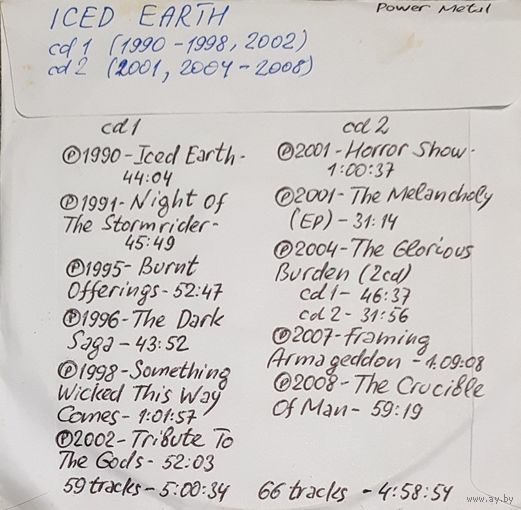 ICED EARTH
Power Metal
cd 1 (1990-1998, 2002)
cd 2 (2001, 2004-2008)
cd1
℗1990-Iced Earth-
44:04
℗1991-Night Of
The Stormrider-
45:49
℗1995-Burnt
Offerings-52:47
℗1996-The Dark
Saga-43:52
℗1998-Something
Wicked This Way
Comes-1:01:57
℗2002-Tribute To
The Gods-52:03
59 tracks-5:00:34
cd 2
℗2001-Horror Show-
1:00:37
℗2001-The Melancholy
(EP)-31:14
℗2004-The Glorious
Burden (2cd)
cd1-46:37
cd2-31:56
℗2007-Framing
Armageddon-1.09:08
℗2008-The Crucible
Of Man-59:19
66 tracks -4:58:54
www.ay.by